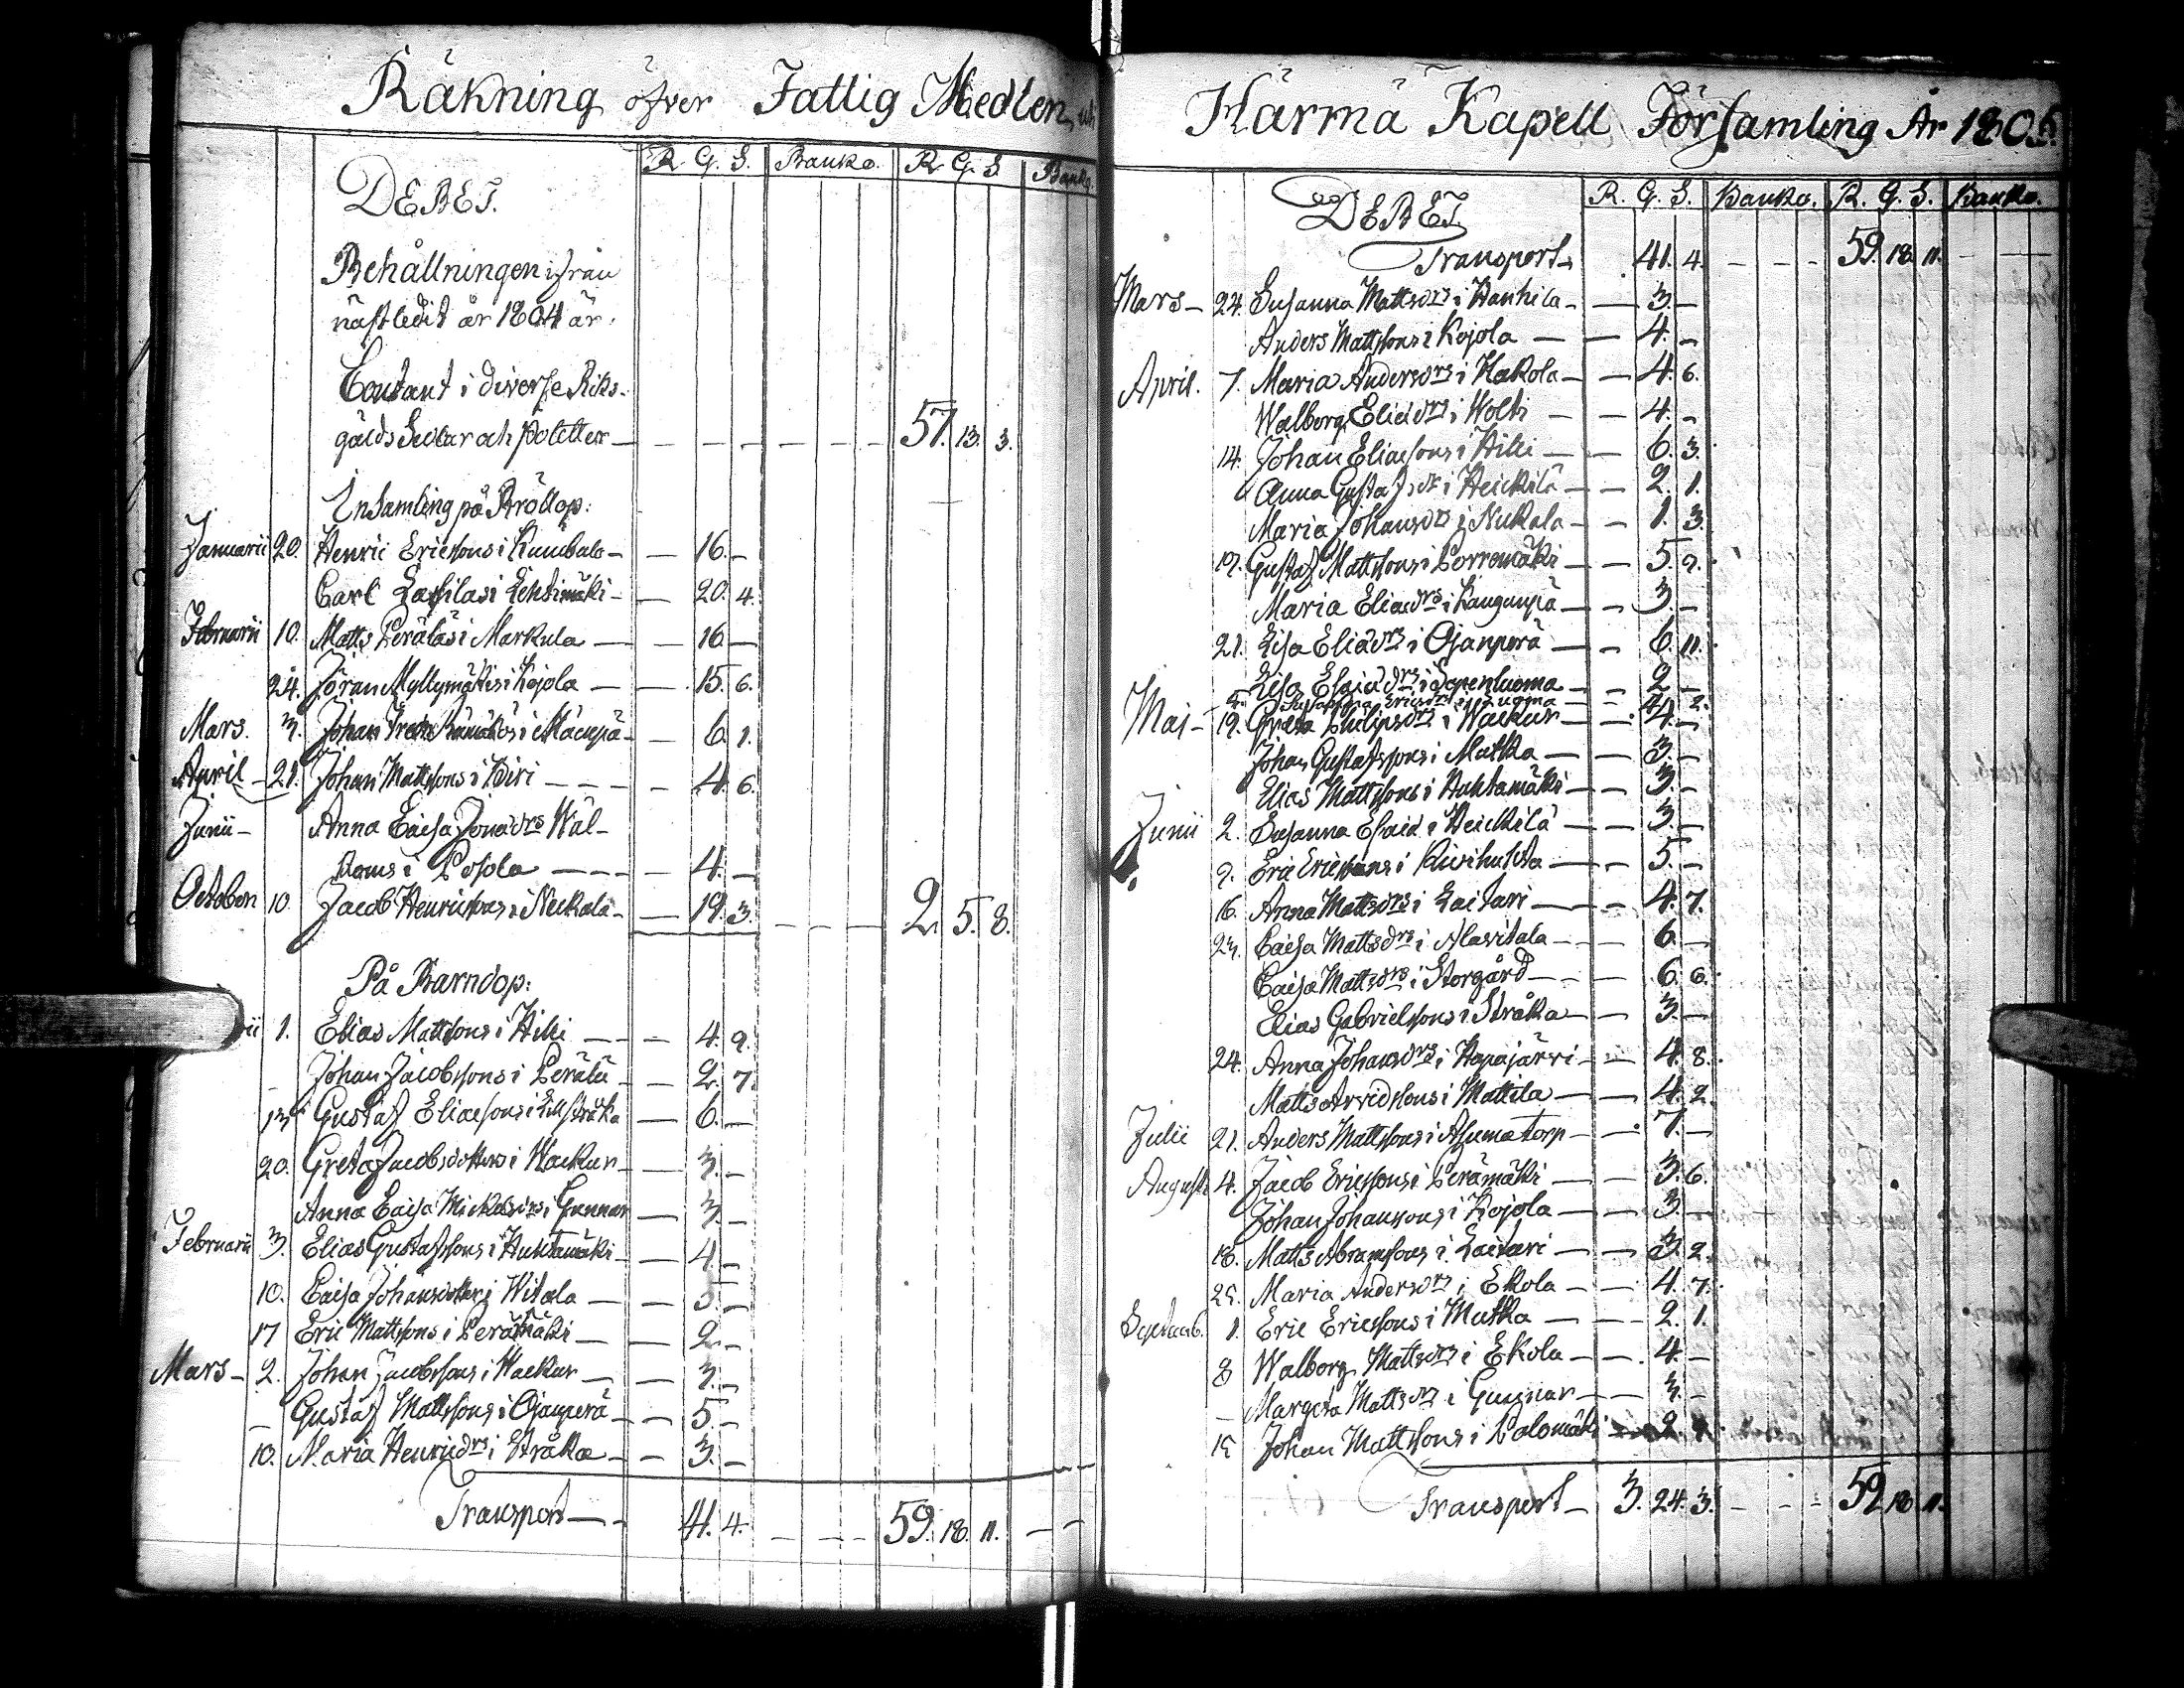 Räkning öfver Fattig Medlen uti
R. G. S. Banko. R. G. S. Banko.
DEBET.
Behållningen ifrån
näst ledit år 1804 är.
Contant i diverse Riks-
gälds Sedlar och Poletter — 57. 13. 3.
Insamling på Bröllop:
Januarii 20. Henric Ericssons i Kumbala — 16. —
Carl Lassilas i Lehtimäki — 20. 4.
Februarii 10. Matts Peräläs i Markula — 16 —
24. Jöran Myllymäkis i Kojola — 15. 6.
Mars. 3. Johan — 6. 1.
April — 21. Johan Mattssons i Piri — 4. 6.
Junii — Anna Caisa Jonædrs Wäl-
doms i Låsola — 4. —
October 10. Jacob Henricssons i Nukala — 19. 3. — 2. 5. 8.
På Barndop:
1. Elias Mattssons i Hilli — 4. 9.
Johan Jacobssons i Perälä — 2. 7.
13 Gustaf Eliaesons i Lillstråka — 6. —
20. Greta Jacobsdotters i Wackur — 3. —
Anna Caisa Mickelsdrs i Gunnar — 3. —
Februarii 3. Elias Gustafssons i Huhtamäki — 4. —
10. Caisa Johansdotter i Witala — 5 —
17 Eric Mattssons i Perämäki — 2 —
Mars — 2. Johan Jacobssons i Wackur — 3. —
— Gustaf Mattssons i Ojanperä — 5. —
10. Maria Henricdrs i Stråka — 3. —
Transport — 41. 4. — 59. 18. 11. —
Härmä Kapell Församling År 1805.
R. G. S. Banko. R. G. S. Banko.
DEBET
Transport — 41. 4. — 59. 18. 11. —
Mars — 24. Susanna Mattsdrs i Hanhila — 3. —
Anders Mattssons i Kojola — 4. —
April. 7. Maria Andersdrs i Hakola — 4. 6.
Walborg Eliædrs i Wolti — 4. —
14. Johan Eliaesons i Hilli — 6. 3.
Anna Gustafsdr i Heickilä — 2. 1.
Maria Johansdrs i Nukala — 1. 3.
19. Gustaf Mattssons i Porremäki — 5. 9.
Maria Eliaedrs i Kangunpä — 3. —
21. Lisa Eliædrs i Ojanperä — 6. 11.
Lisa Esaiædrs i Sepenluoma — 2 —
5. Susanna Ericsdrs i Luoma — 4. 2.
Maj — 19. Greta Philipsdrs i Wackur — 4. —
Johan Gustafssons i Matka — 3. —
Elias Mattssons i Huhtamäki — 3. —
Junii 2. Susanna Esaiæ i Heickilä — 3. —
9. Eric Ericssons i Kivihuhta — 5. —
16. Anna Mattsdrs i Laitari — 4. 7.
23. Caisa Mattsdrs i Alawitala — 6. —
Caisa Mattsdrs i Storgård — 6. 6.
Elias Gabrielssons i Stråka — 3. —
24. Anna Johansdrs i Hapajärvi — 4. 8.
Matts Arvidssons i Mattila — 4. 2.
Julii 21. Anders Mattssons i Asumatorp — 7. —
Augusti 4. Jacob Ericssons i Perämäki — 3. 6.
Johan Johanssons i Kojola — 3. —
18. Matts Abramssons i Laitari — 3. 2.
25. Maria Andersdrs i Ekola — 4. 7.
Septemb. 1. Eric Ericssons i Matka — 2. 1.
8 Walborg Mattsdrs i Ekola — 4. —
— Margeta Mattsdrs i Gunnar — 3. —
15 Johan Mattssons i Palomäki — 2.
Transport — 3. 24. 3. — 59. 18. 11.